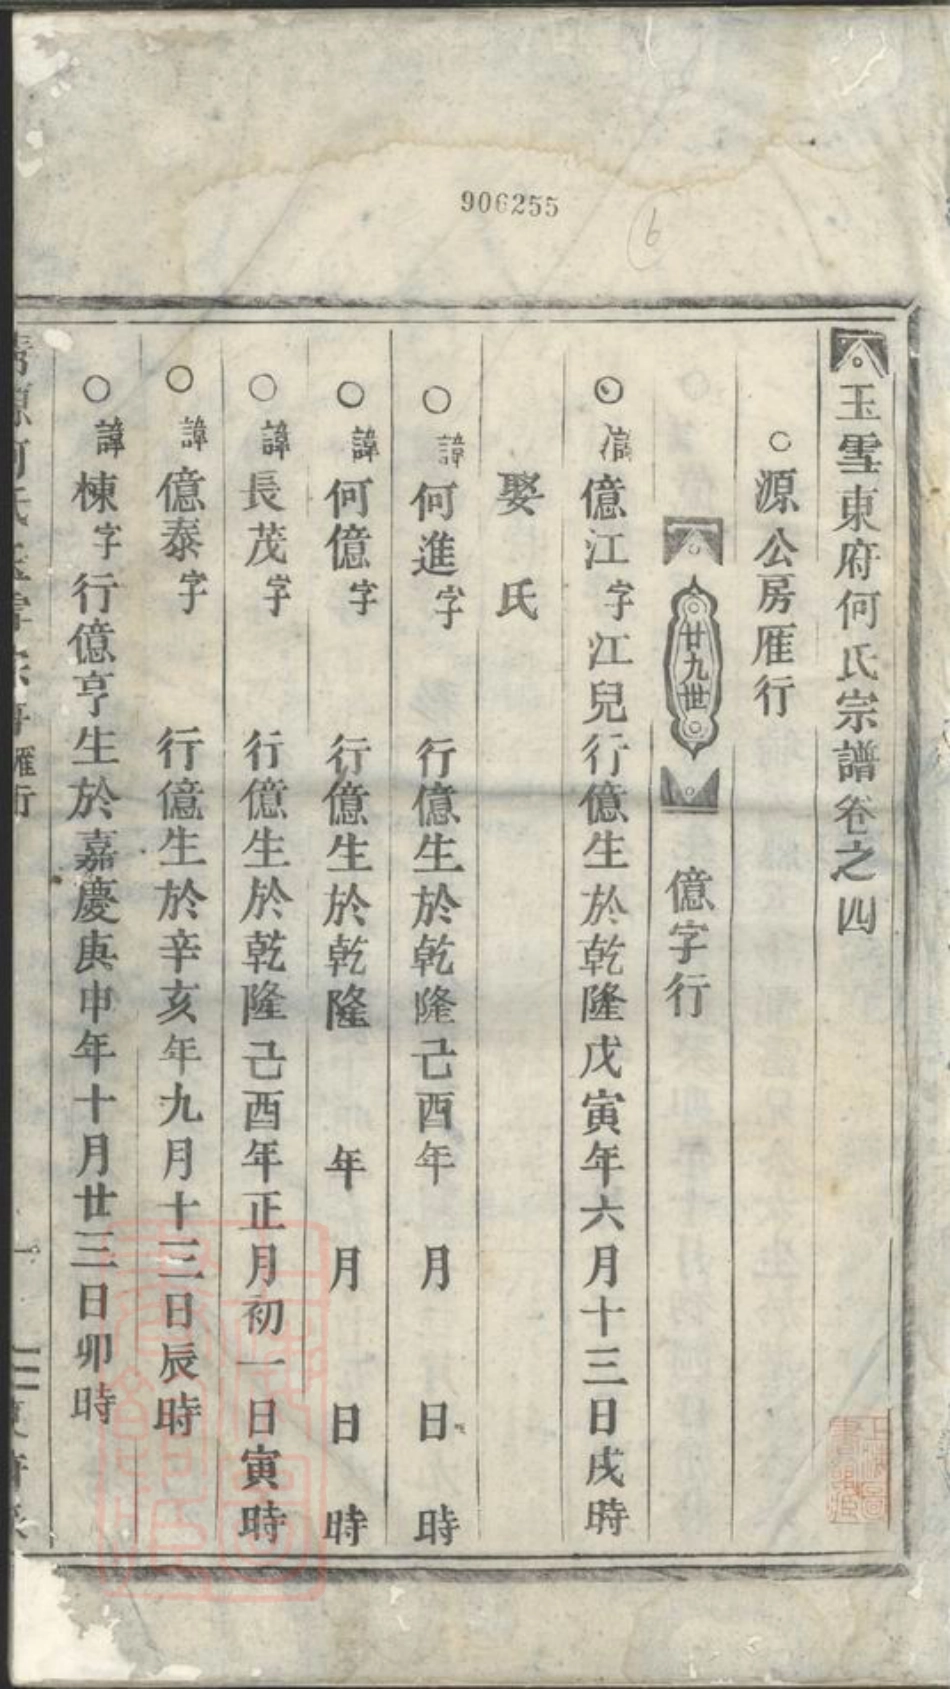 906255
6
玉雪東府何氏宗譜卷之四
○源公房雁行
廿九世 億字行
○諱億江字江兒行億生於乾隆戊寅年六月十三日戌時
娶 氏
○諱何進字 行億生於乾隆己酉年 月 日 時
○諱何億字 行億生於乾隆 年 月 日 時
○諱長茂字 行億生於乾隆己酉年正月初一日寅時
○諱億泰字 行億生於辛亥年九月十三日辰時
○諱棟字行億亨生於嘉慶庚申年十月廿三日卯時